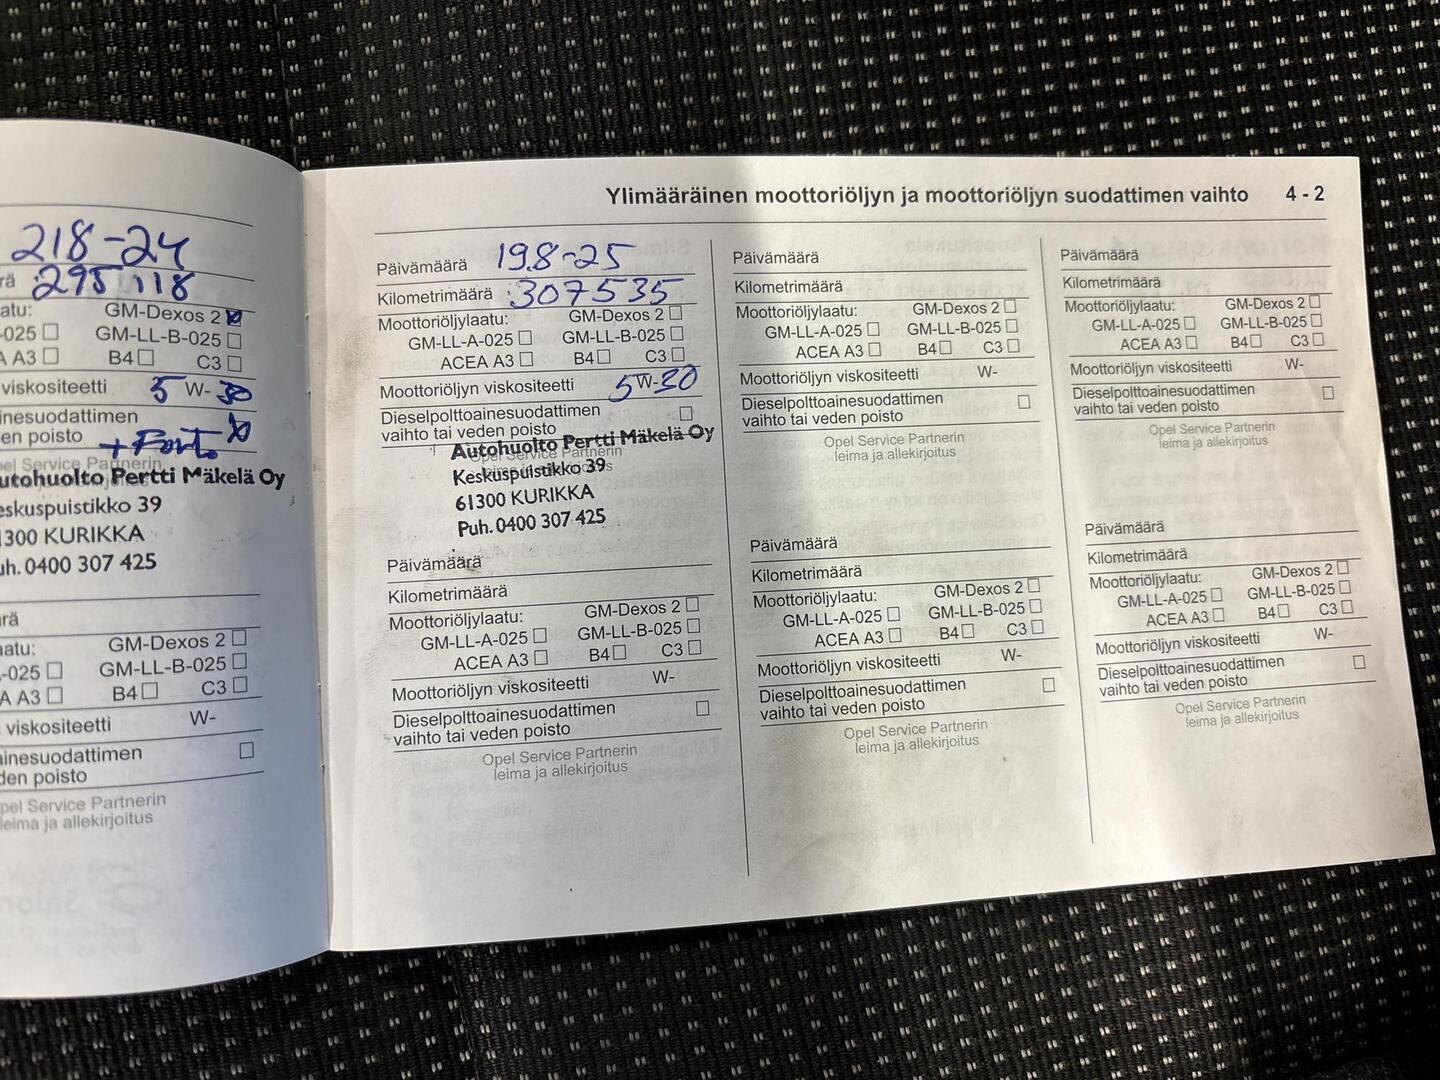 218-24
rä 295118
aatu: GM-Dexos 2
-025 GM-LL-B-025
A A3 B4 C3
viskositeetti 5 W- 30
inesuodattimen
en poisto + Fort.
pel Service Partnerin
utohuolto Pertti Mäkelä Oy
eskuspuistikko 39
1300 KURIKKA
uh. 0400 307 425
rä
aatu: GM-Dexos 2
-025 GM-LL-B-025
A A3 B4 C3
viskositeetti W-
inesuodattimen
den poisto
pel Service Partnerin
leima ja allekirjoitus
Ylimääräinen moottoriöljyn ja moottoriöljyn suodattimen vaihto 4 - 2
Päivämäärä 19.8-25
Kilometrimäärä 307535
Moottoriöljylaatu: GM-Dexos 2
GM-LL-A-025 GM-LL-B-025
ACEA A3 B4 C3
Moottoriöljyn viskositeetti 5 W-30
Dieselpolttoainesuodattimen
vaihto tai veden poisto
Opel Service Partnerin
Autohuolto Pertti Mäkelä Oy
Keskuspuistikko 39
61300 KURIKKA
Puh. 0400 307 425
Päivämäärä
Kilometrimäärä
Moottoriöljylaatu: GM-Dexos 2
GM-LL-A-025 GM-LL-B-025
ACEA A3 B4 C3
Moottoriöljyn viskositeetti W-
Dieselpolttoainesuodattimen
vaihto tai veden poisto
Opel Service Partnerin
leima ja allekirjoitus
Päivämäärä
Kilometrimäärä
Moottoriöljylaatu: GM-Dexos 2
GM-LL-A-025 GM-LL-B-025
ACEA A3 B4 C3
Moottoriöljyn viskositeetti W-
Dieselpolttoainesuodattimen
vaihto tai veden poisto
Opel Service Partnerin
leima ja allekirjoitus
Päivämäärä
Kilometrimäärä
Moottoriöljylaatu: GM-Dexos 2
GM-LL-A-025 GM-LL-B-025
ACEA A3 B4 C3
Moottoriöljyn viskositeetti W-
Dieselpolttoainesuodattimen
vaihto tai veden poisto
Opel Service Partnerin
leima ja allekirjoitus
Päivämäärä
Kilometrimäärä
Moottoriöljylaatu: GM-Dexos 2
GM-LL-A-025 GM-LL-B-025
ACEA A3 B4 C3
Moottoriöljyn viskositeetti W-
Dieselpolttoainesuodattimen
vaihto tai veden poisto
Opel Service Partnerin
leima ja allekirjoitus
Päivämäärä
Kilometrimäärä
Moottoriöljylaatu: GM-Dexos 2
GM-LL-A-025 GM-LL-B-025
ACEA A3 B4 C3
Moottoriöljyn viskositeetti W-
Dieselpolttoainesuodattimen
vaihto tai veden poisto
Opel Service Partnerin
leima ja allekirjoitus